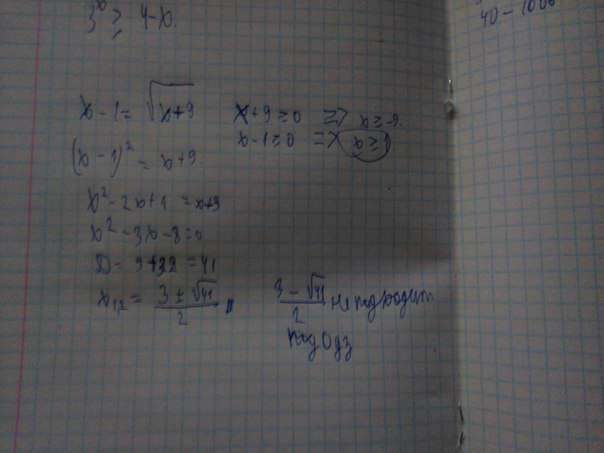 3^x ≥ 4-x.
40-1000
x-1 = √(x+9)    x+9≥0 => x≥-9.
x-1≥0 => x≥1
(x-1)² = x+9
x²-2x+1 = x+9
x²-3x-8=0
D= 9+32=41
x₁,₂ = (3±√41)/2
(3-√41)/2 не подходит
под ОДЗ